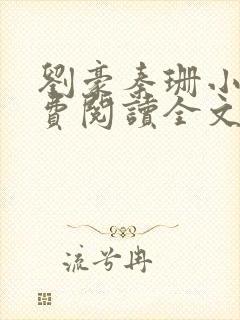 劉豪秦珊小
費閱讀全文
流兮冉